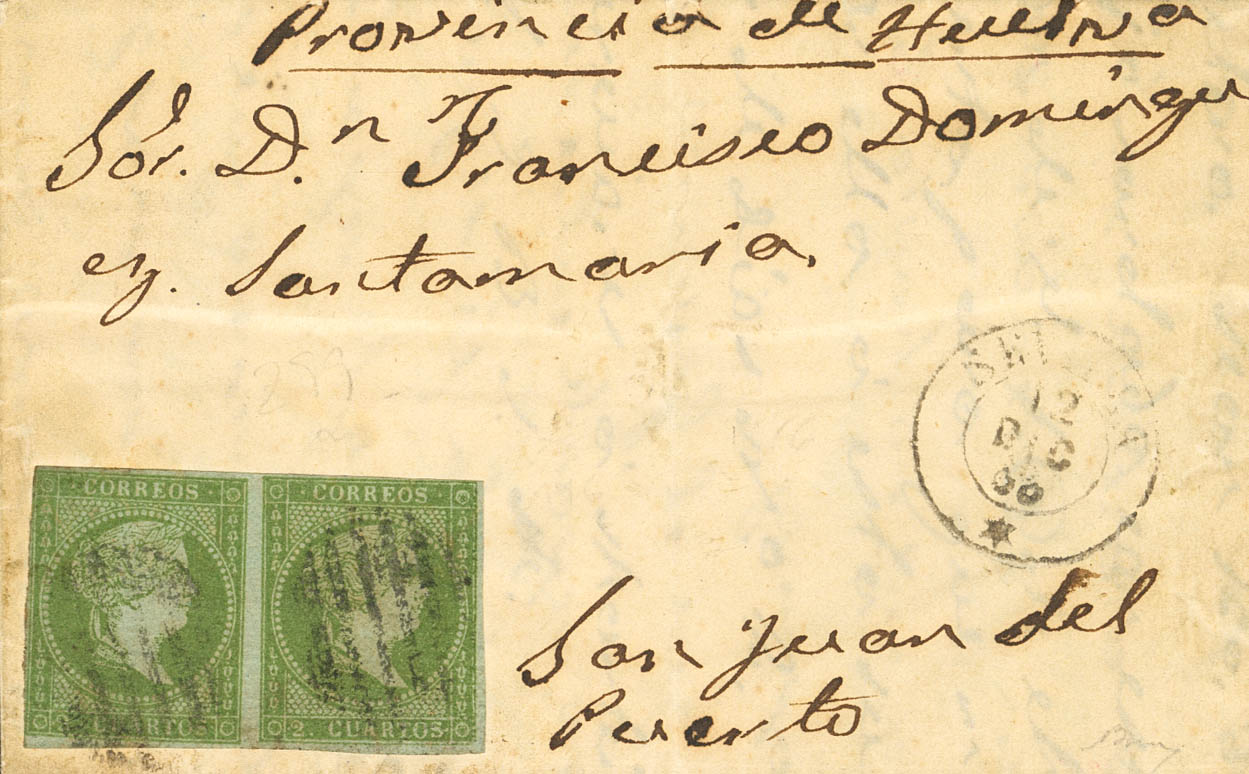 Provincia de Huelva
Sor. Dn Francisco Domingu
ez. Santamaria.
SEVILLA
12
DIC
56
CORREOS
CORREOS
2 CUARTOS
2 CUARTOS
San Juan del
Puerto